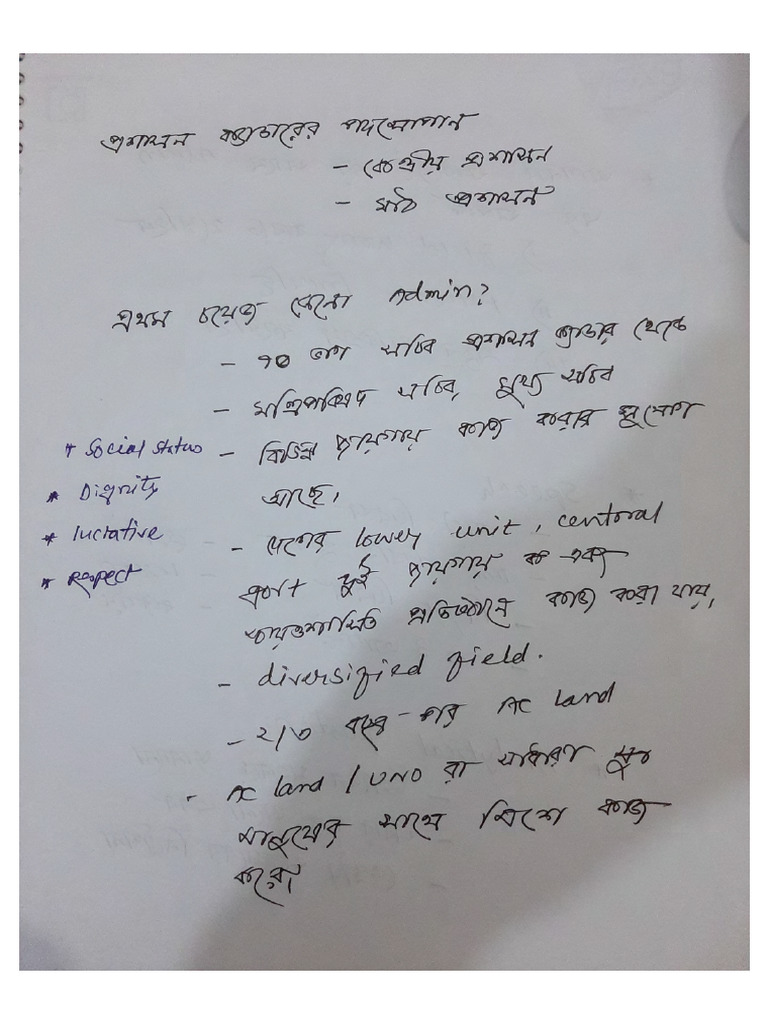 প্রশাসন ক্যাডারের পদসোপান
- কেন্দ্রীয় প্রশাসন
- মাঠ প্রশাসন
প্রথম চয়েজ কেনো Admin?
- ৭০ ভাগ সচিব প্রশাসন ক্যাডার থেকে
- মন্ত্রিপরিষদ সচিব, মুখ্য সচিব
* Social status
- বিভিন্ন জায়গায় কাজ করার সুযোগ
* Dignity
আছে,
* luctative
- দেশের lower unit, centoral
* Respect
এবং দুই জায়গায় এবং
স্বায়ত্তশাসিত প্রতিষ্ঠানে কাজ করা যায়,
- diversified field.
- ২/৩ বছর পর AC land
- AC land / UNO রা সাধারণ
মানুষের সাথে মিশে কাজ
করে।